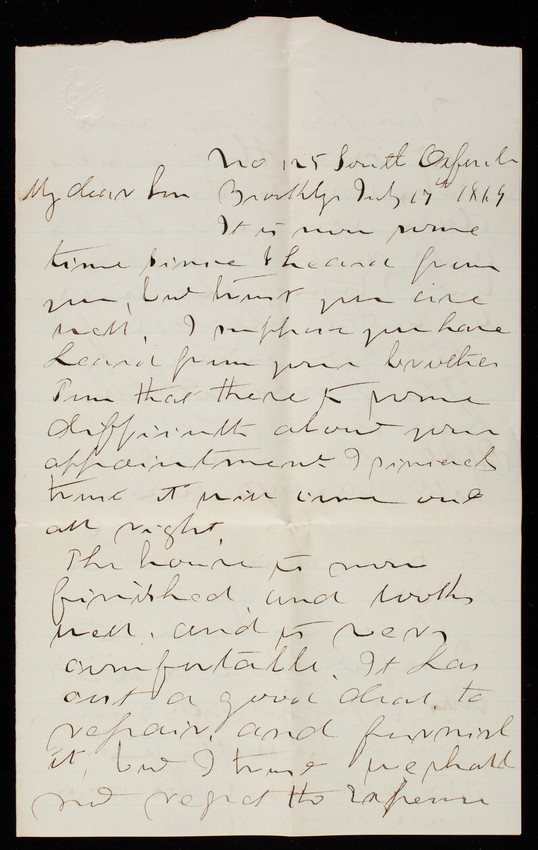 No 125 South Oxford
My dear Son Brooklyn July 17th 1869
It is now some
time since I heard from
you, but trust you are
well. I suppose you have
heard from your brother
Tom that there is some
difficulty about your
appointment I sincerely
trust it will come out
all right.
The house is now
finished and looks
well. and is very
comfortable. It has
cost a good deal to
repair and furnish
it, but I trust we shall
not regret the Expense